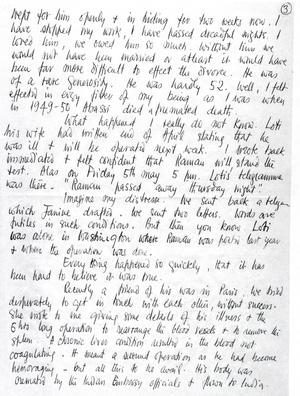 ③
wept for him openly & in hiding for two weeks now. I
have stopped my work, I have passed dreadful nights. I
loved him, we owed him so much. Without him we
would not have been married or atleast it would have
been far more difficult to effect the divorce. He was
of a rare generosity. He was hardly 52. Well, I felt
effected in every fibre of my being as I was when
in 1949-50 Abassi died a premated death.
What happened I really do not know. Loti
his wife had written end of April stating that he
was ill & will be operated next week. I wrote back
immediately & felt confident that Raman will stand the
test. Alas on Friday 5th may 5 pm. Loti's telegramme
was there - "Raman passed away thursday night".
Imagine my distress. We sent back a telegm
which Janine drafted. We sent two letters. Words are
futiles in such conditions. But then you know Loti
was alone in Washington where Raman was posted last year
& where the operation was done.
Everything happened so quickly, that it has
been hard to believe it was true.
Recently a friend of his was in Paris, we tried
desperately to get in touch with each other, without success.
She wrote to me giving some details of his illness & the
6 hrs long operation to rearrange the blood vessels & to remove his
spleen. A chronic liver condition resulted in the blood not
coagulating. It meant a second operation as he had become
hemoraging - but all this to no avail. His body was
cremated by the Indian Embassy officials & flown to India.